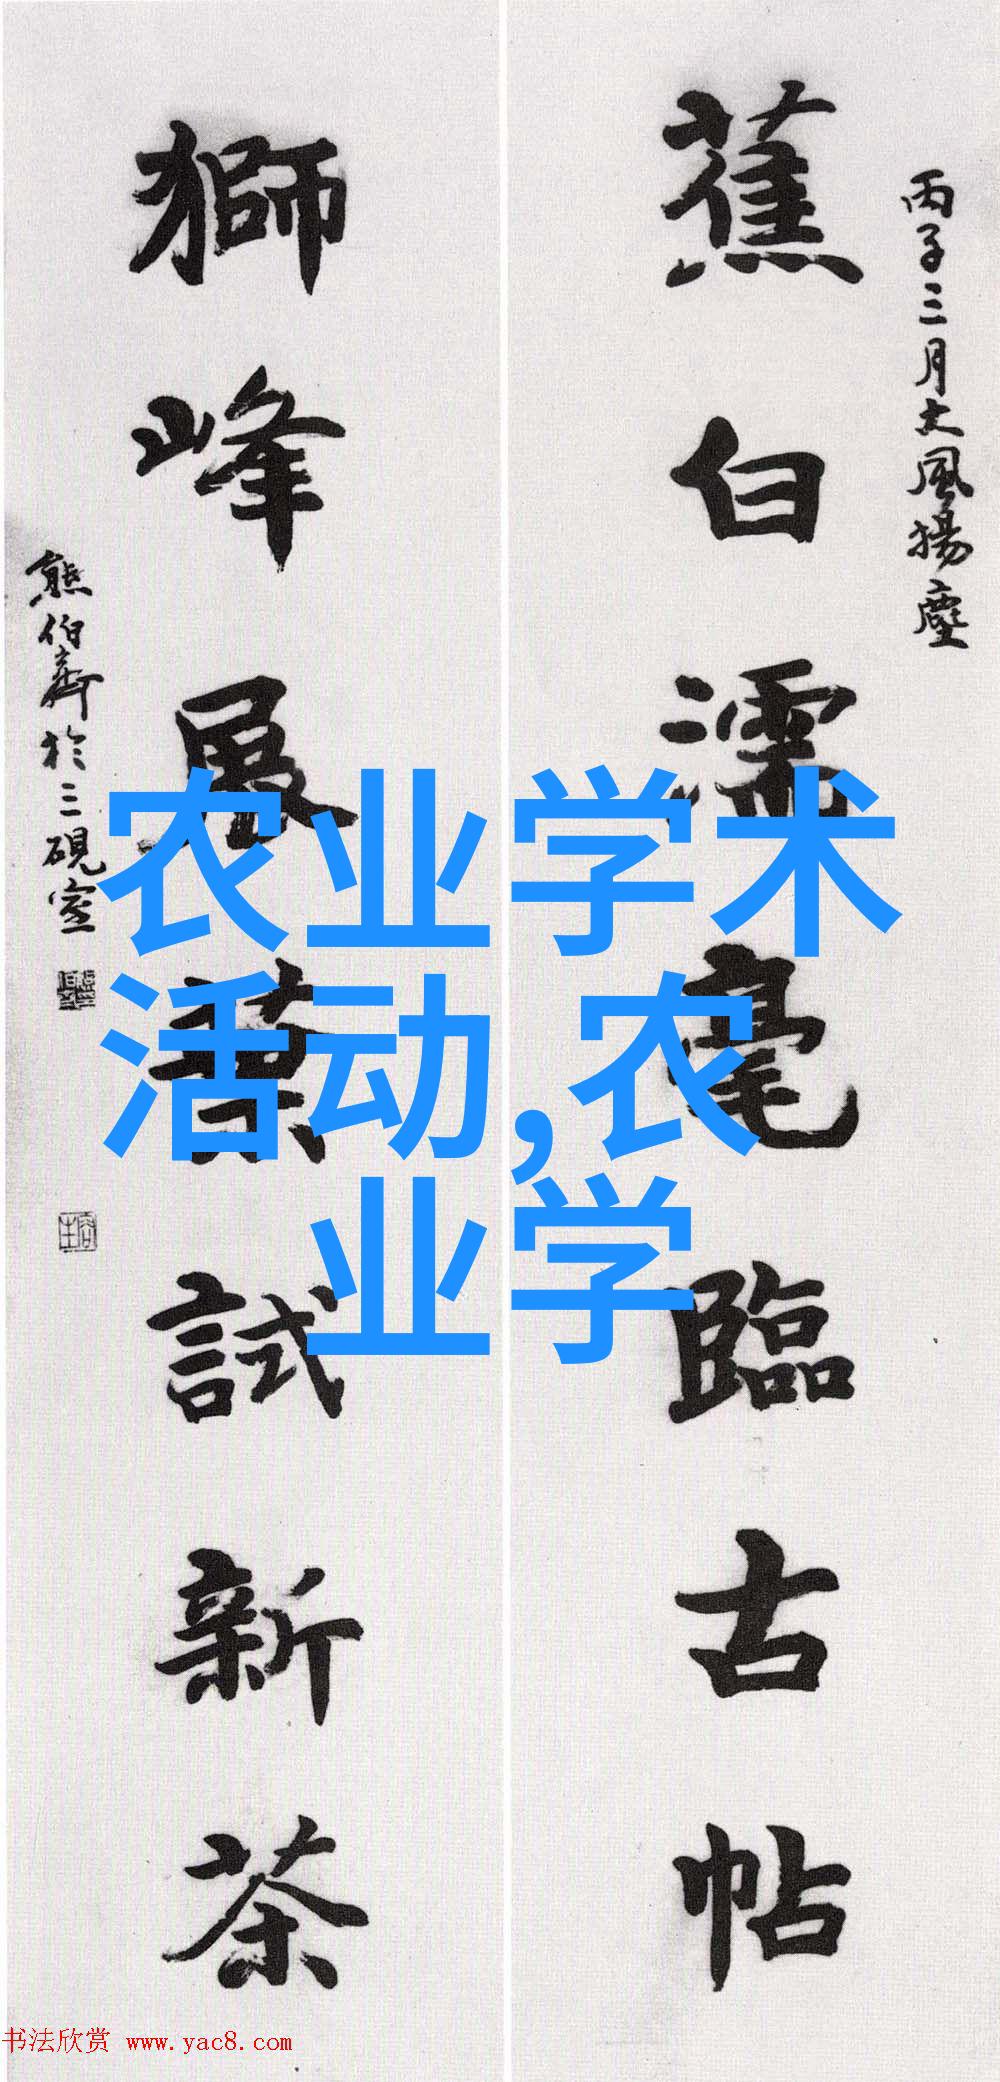 丙子三月大風揚塵
蕉白濡毫臨古帖
獅峰展葉試新茶
熊伯齊於三硯室
农业学术
活动,农
业学
书法欣赏 www.yac8.com